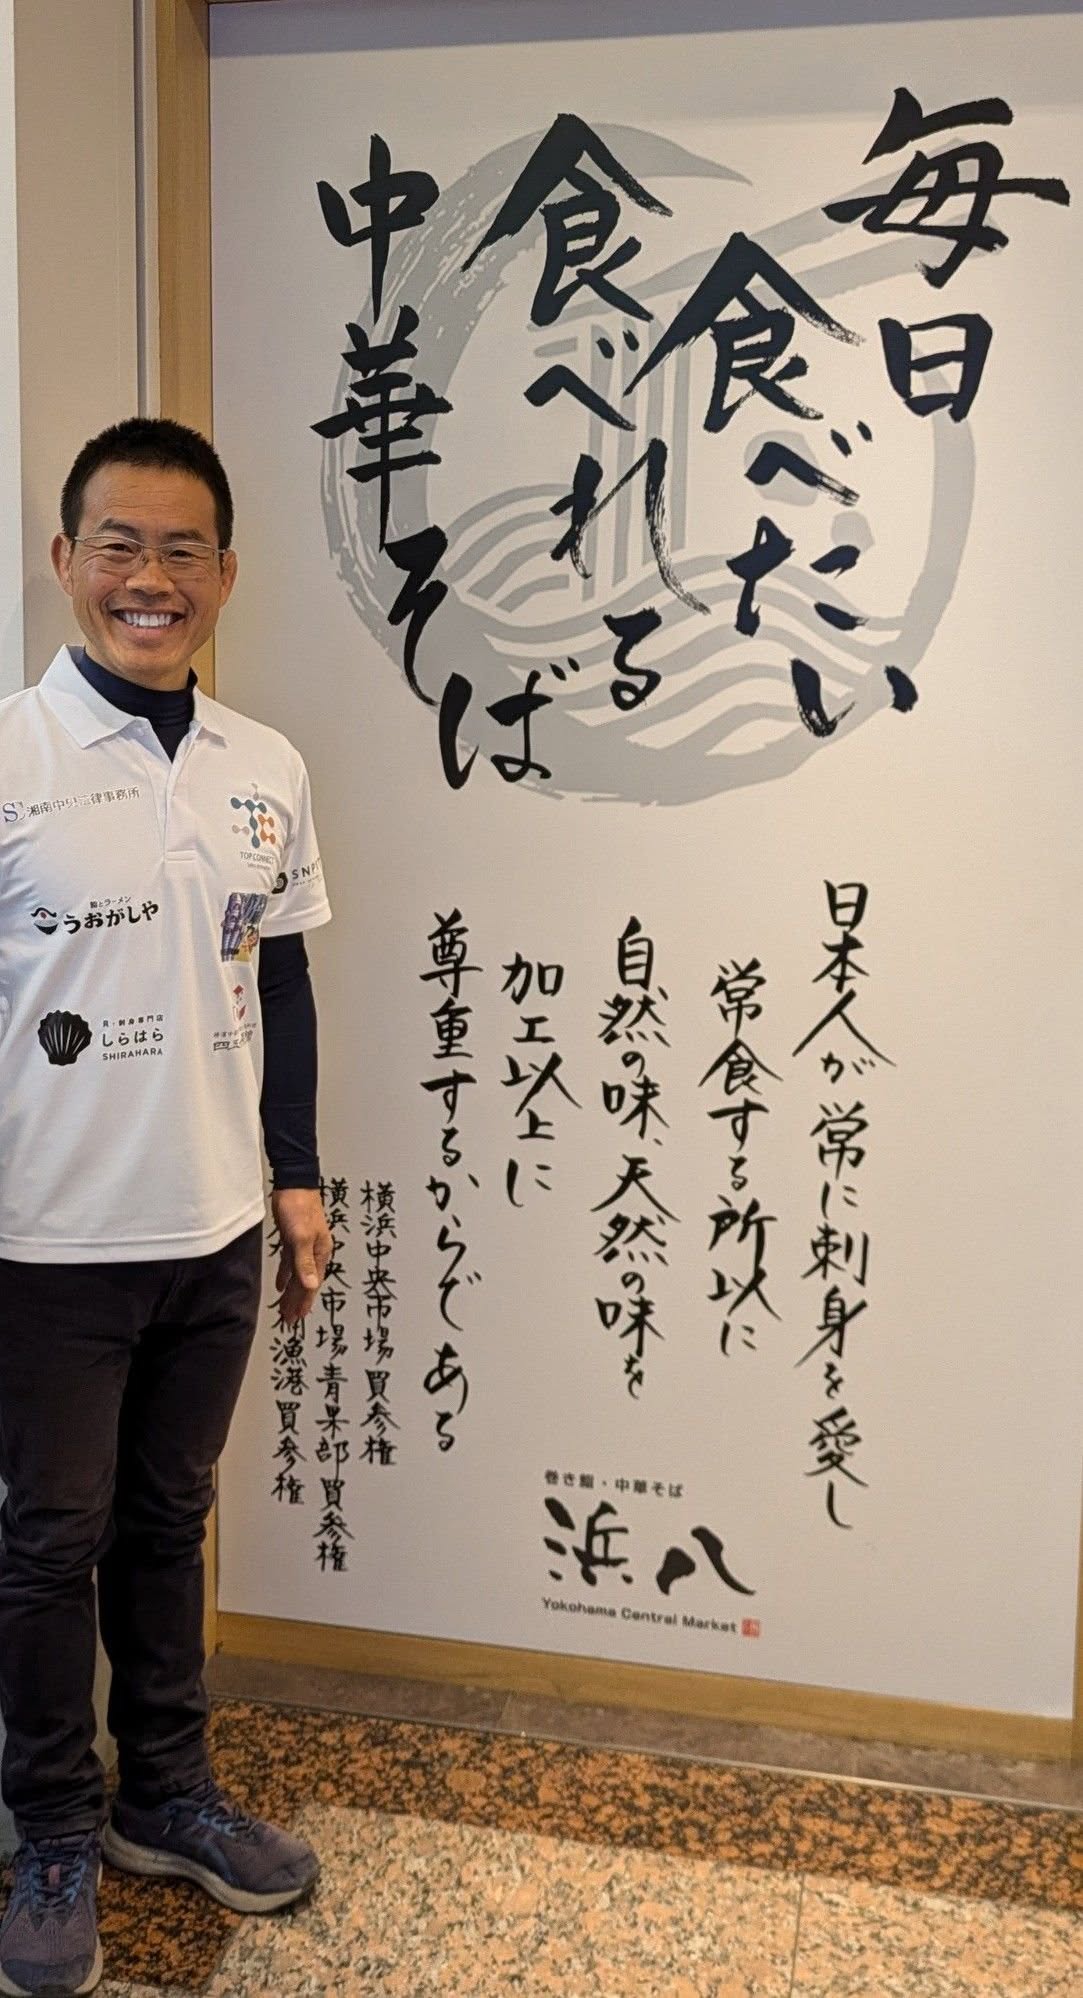 毎日
食べたい
食べれる
中華そば
日本人が常に刺身を愛し
常食する所以に
自然の味、天然の味を
加工以上に
尊重するからである
横浜中央市場買参権
横浜中央市場青果部買参権
漁港買参権
巻き鮨・中華そば
浜八
Yokohama Central Market
湘南中央法律事務所
TOP CONNECT
鮨とラーメン
うおがしや
貝・刺身専門店
しらはら
SHIRAHARA